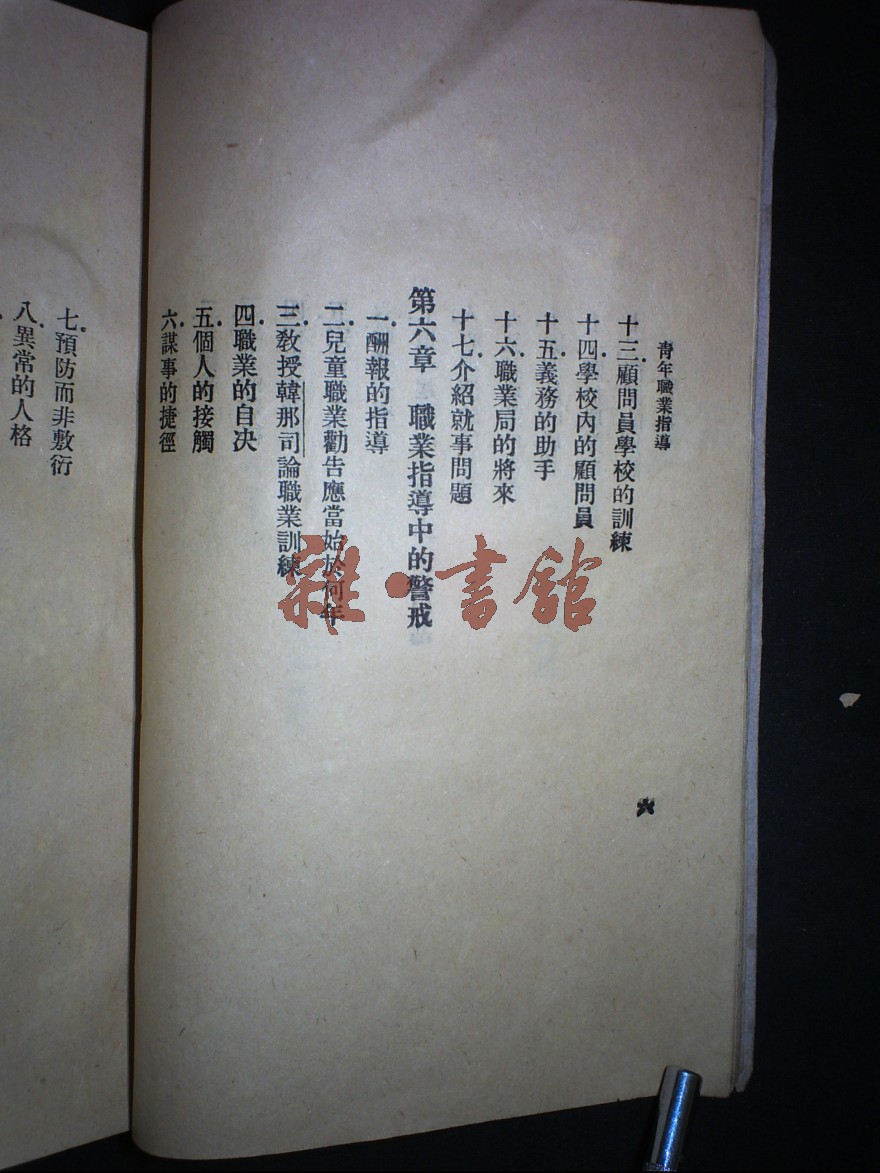 青年職業指導
十三.顧問員學校的訓練
十四.學校內的顧問員
十五.義務的助手
十六.職業局的將來
十七.介紹就事問題
第六章　職業指導中的警戒
一.酬報的指導
二.兒童職業勸告應當始於何年
三.教授韓那司論職業訓練
四.職業的自决
五.個人的接觸
六.謀事的捷徑
六
七.預防而非敷衍
八.異常的人格
雜·書館